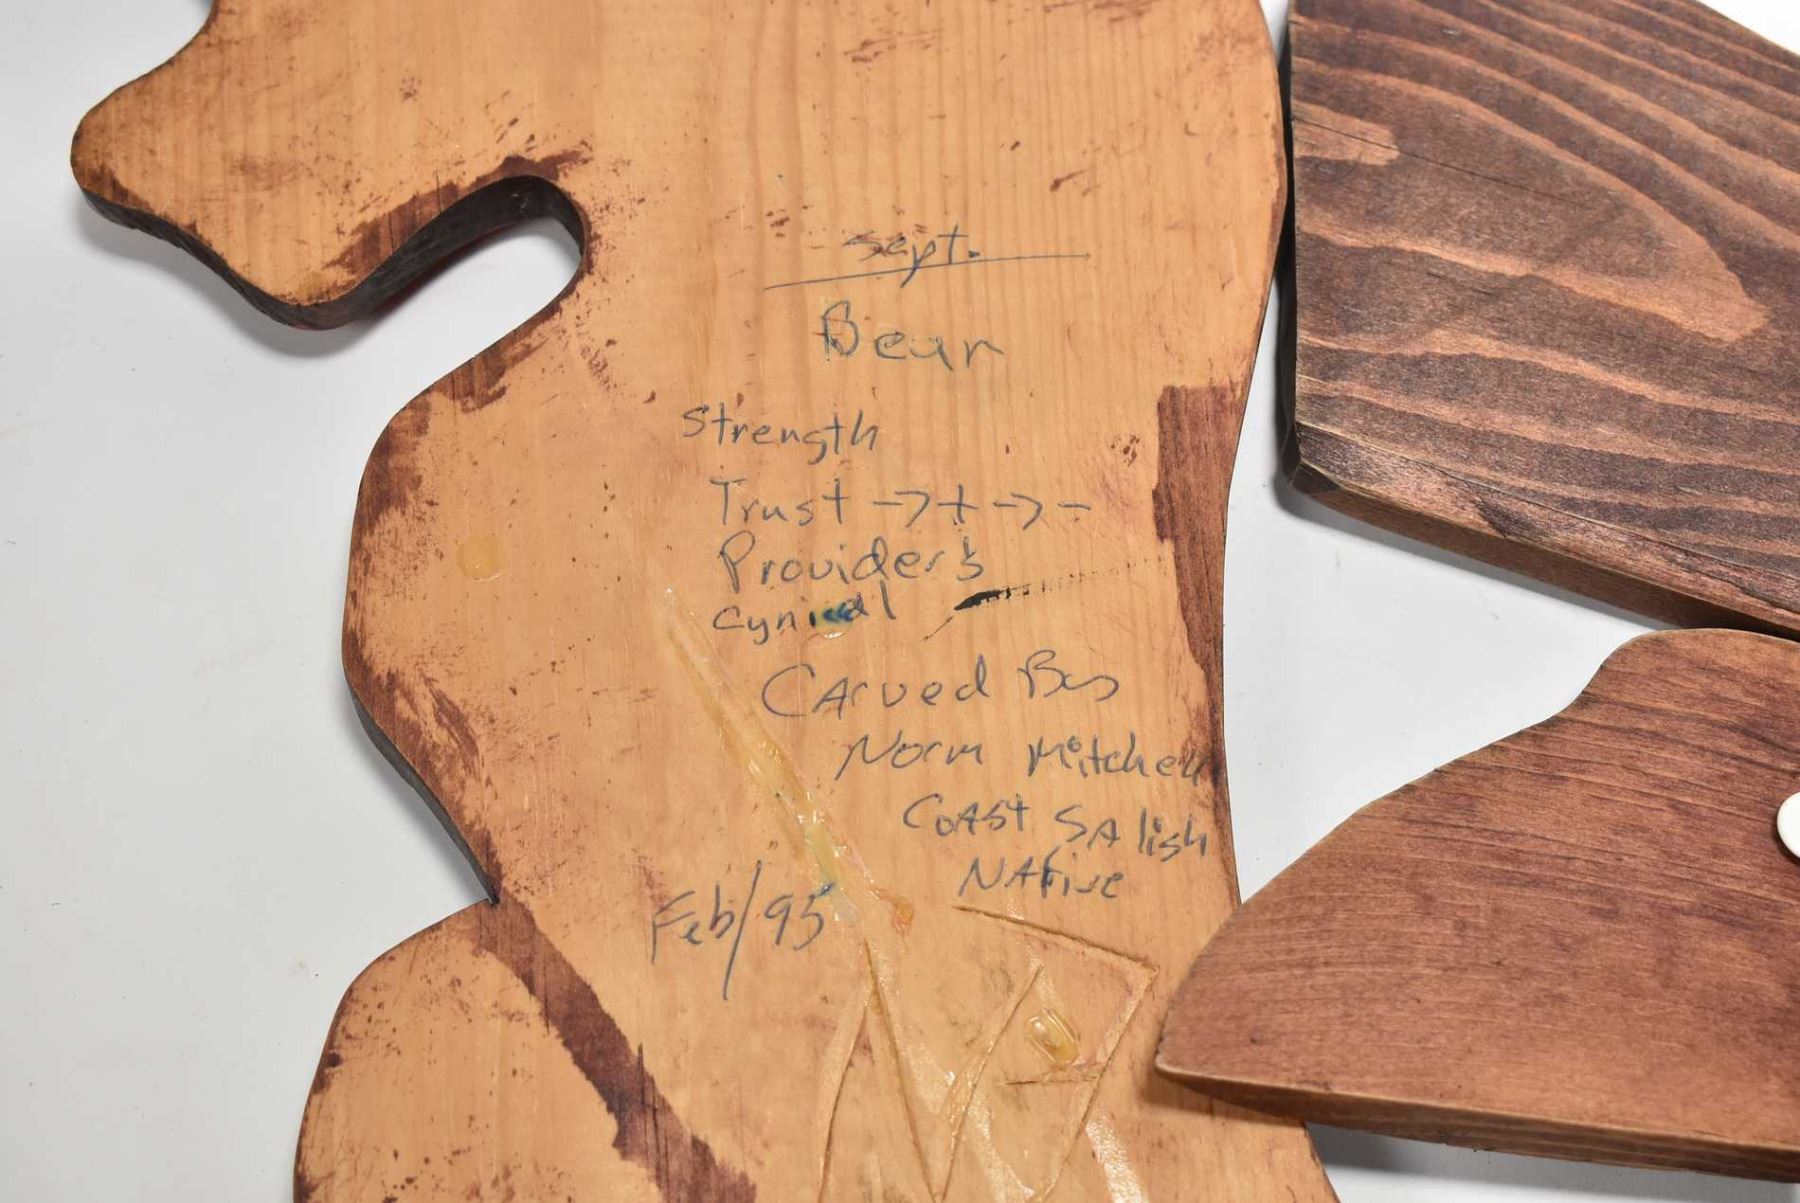 Sept.
Bear
Strength
Trust -> + -> -
Providers
Cynical
Carved By
Norm Mitchell
Coast Salish
Native
Feb/95